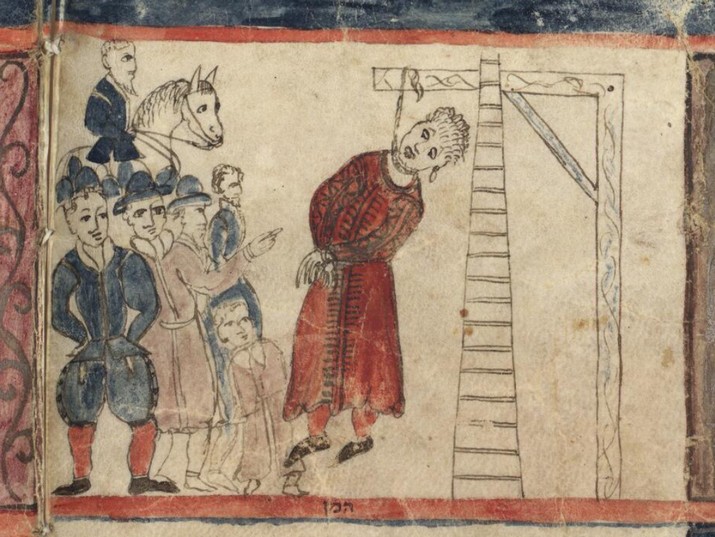 המן